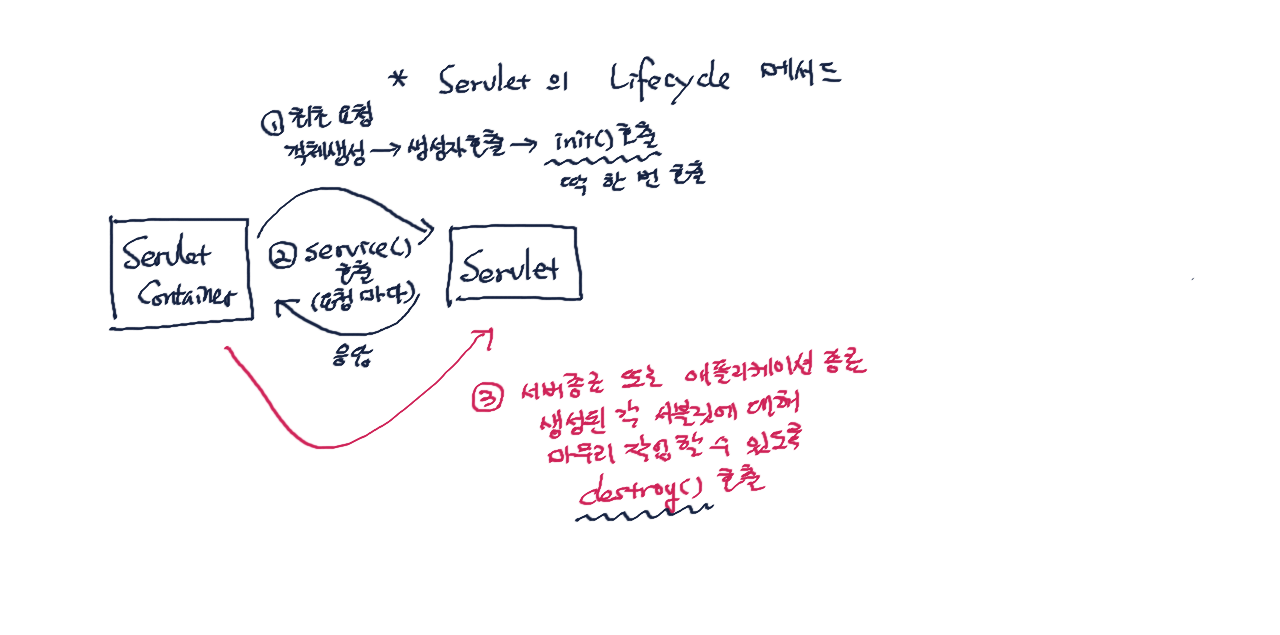 * Servlet의 Lifecycle 메서드
① 최초 요청
객체생성 → 생성자호출 → init() 호출
딱 한 번 호출
Servlet
Container
② service()
호출
(요청 마다)
응답
Servlet
③ 서버종료 또는 애플리케이션 종료
생성된 각 서블릿에 대해
마무리 작업할 수 있도록
destroy() 호출